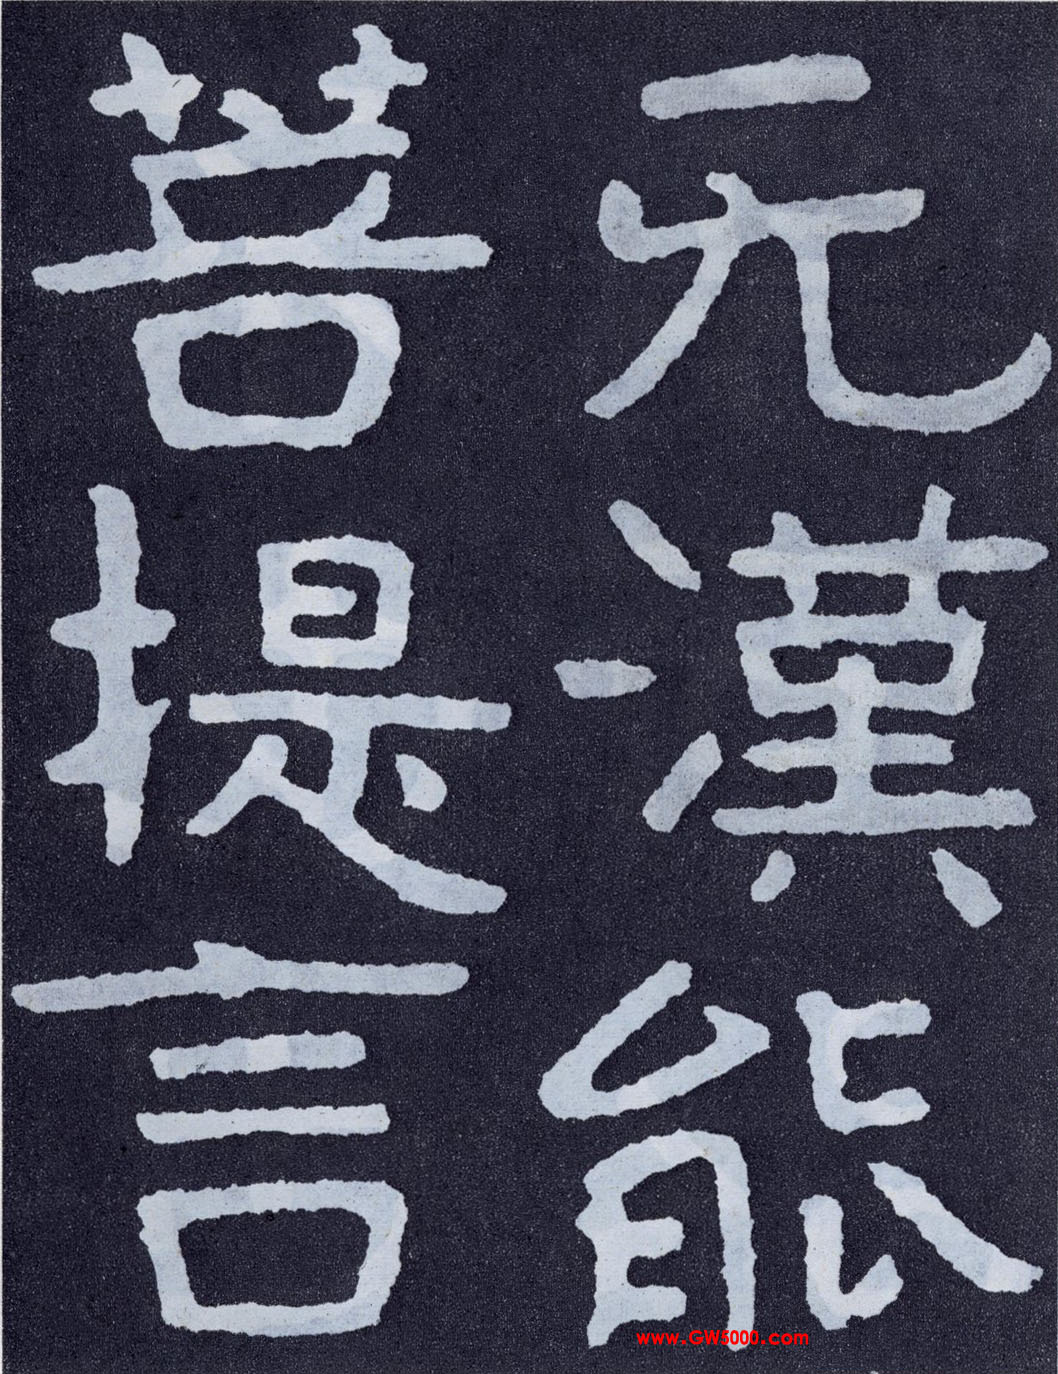 元漢能
菩提言
www.GW5000.com